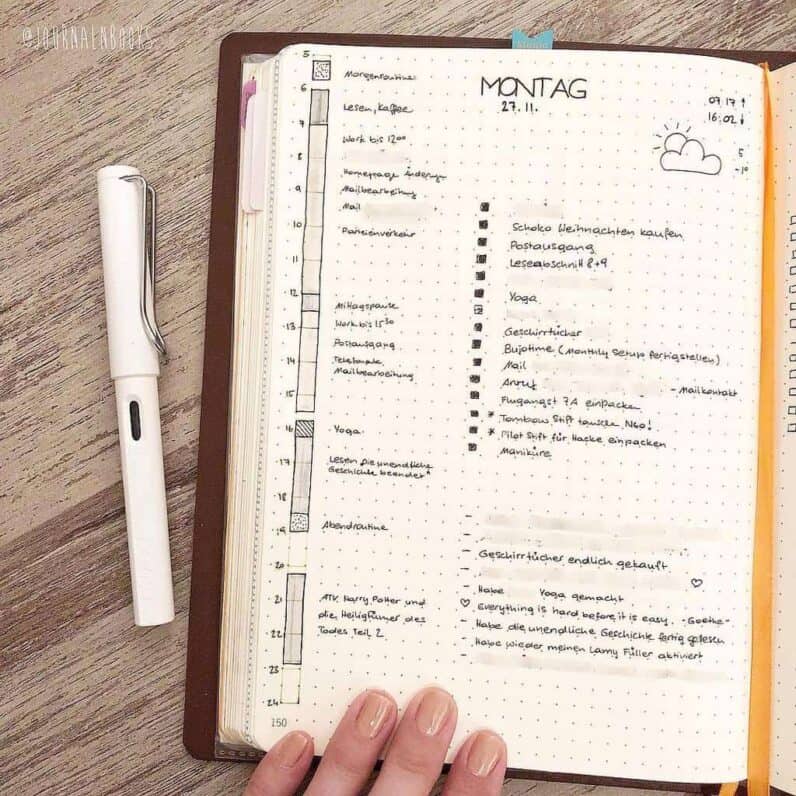 @JOURNALNBOOKS
MONTAG
27.11.
07:17 ↑
16:02 ↓
5
-10
5
Morgenroutine
6
Lesen, Kaffee
7
Work bis 12⁰⁰
8
Homepage Änderungen
9
Mailbearbeitung
Mail
10
Parteienverkehr
11
12
Mittagspause
13
Work bis 15³⁰
Postausgang
14
Telefonate,
Mailbearbeitung
15
16
Yoga
17
Lesen "Die unendliche
Geschichte beendet"
18
19
Abendroutine
20
21
ATV, Harry Potter und
die Heiligtümer des
22
Todes Teil 2
23
24
150
Schoko Weihnachten kaufen
Postausgang
Leseabschnitt 8+9
Yoga
Geschirrtücher
Bujotime (Monthly Setup fertigstellen)
Mail
Anruf - Mailkontakt
Flugangst 7A einpacken
* Tombow Stift tausche N60!
* Pilot Stift für Hacke einpacken
Maniküre
Geschirrtücher endlich gekauft
Habe Yoga gemacht
♡ Everything is hard before it is easy. -Goethe-
- Habe die unendliche Geschichte fertig gelesen
- Habe wieder meinen Lamy Füller aktiviert